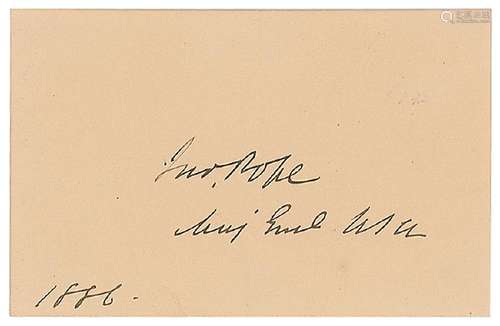 Jno. Pope
Maj Genl USA
1886.